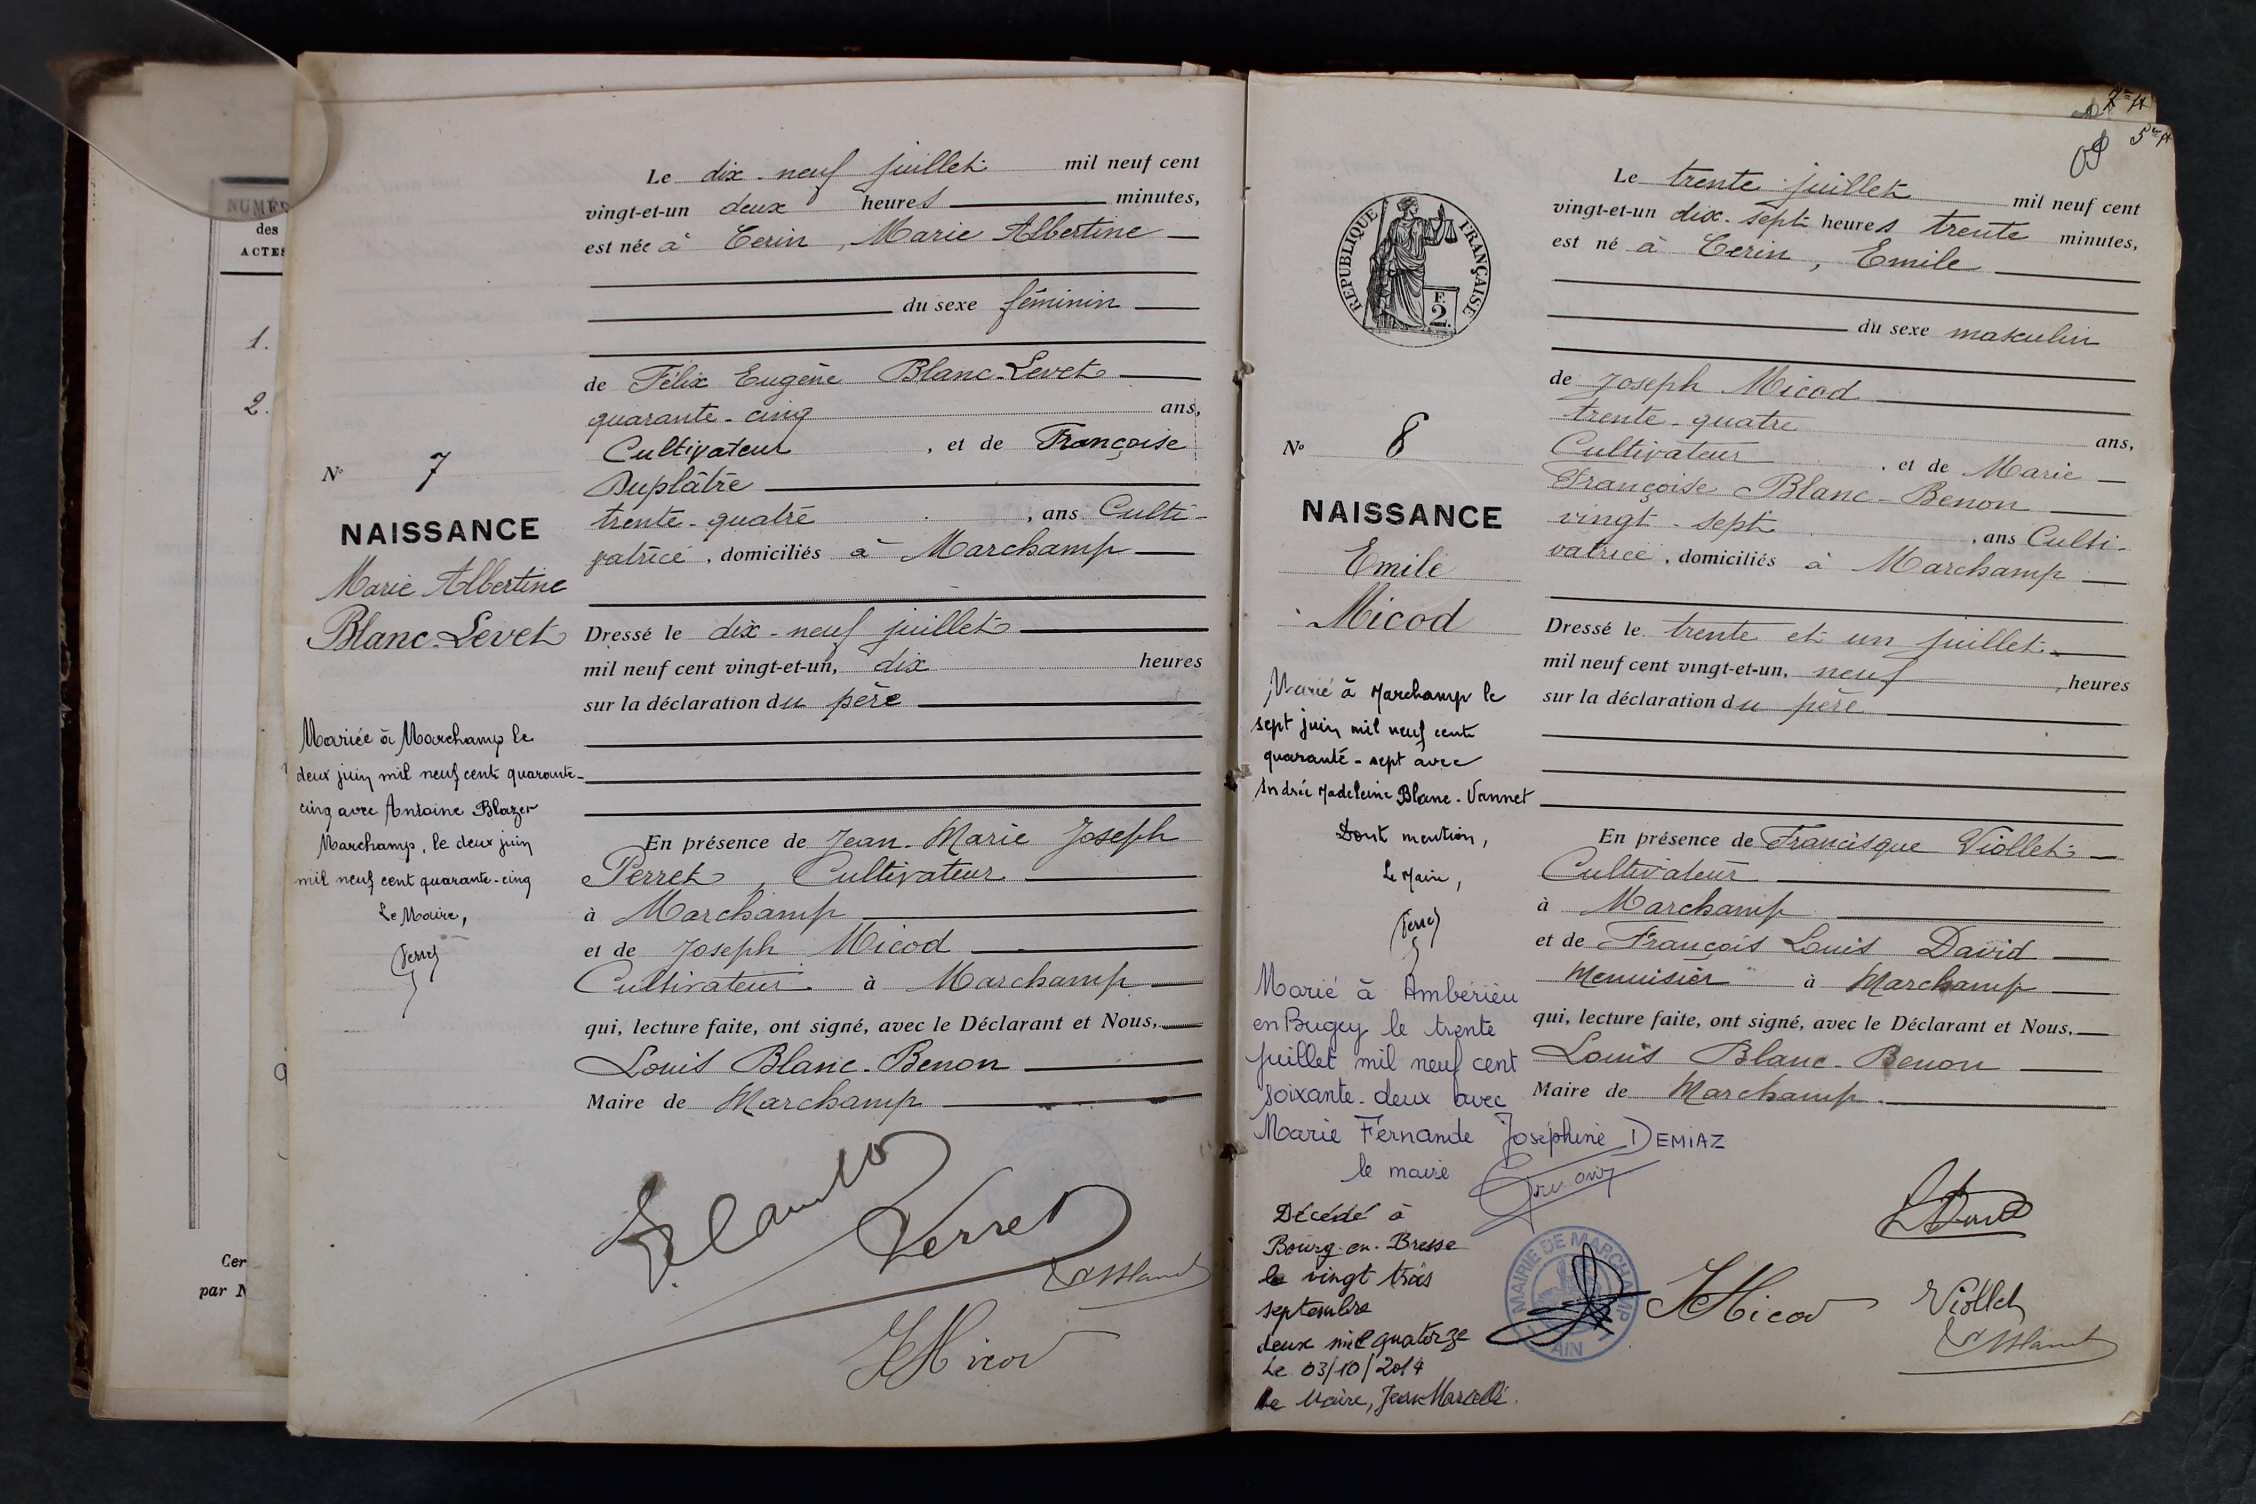 NUMÉR
des
ACTES
1.
2.
Cer
par N
N° 7
NAISSANCE
Marie Albertine
Blanc-Levet
Mariée à Marchamp le
deux juin mil neuf cent quarante-
cinq avec Antoine Blazer
Marchamp, le deux juin
mil neuf cent quarante-cinq
Le Maire,
Perret
Le dix-neuf juillet mil neuf cent
vingt-et-un deux heures minutes,
est née à Cerin, Marie Albertine
du sexe féminin
de Félix Eugène Blanc-Levet
quarante-cinq ans,
Cultivateur, et de Françoise
Duplâtre
trente-quatre, ans Culti-
vatrice, domiciliés à Marchamp
Dressé le dix-neuf juillet
mil neuf cent vingt-et-un, dix heures
sur la déclaration du père
En présence de Jean-Marie Joseph
Perret, Cultivateur
à Marchamp
et de Joseph Micod
Cultivateur à Marchamp
qui, lecture faite, ont signé, avec le Déclarant et Nous,
Louis Blanc-Benon
Maire de Marchamp
Perret
JMicod
RÉPUBLIQUE FRANÇAISE
F.
2.
N° 8
NAISSANCE
Emile
Micod
Marié à Marchamp le
sept juin mil neuf cent
quarante-sept avec
Andrée Madeleine Blanc-Vannet
Dont mention,
Le Maire,
Perret
Marié à Ambérieu
en Bugey le trente
juillet mil neuf cent
soixante-deux avec
Marie Fernande Joséphine DEMIAZ
le maire
Décédé à
Bourg-en-Bresse
le vingt trois
septembre
deux mil quatorze
Le 03/10/2014
Le Maire, Jean Marcelli.
Le trente juillet mil neuf cent
vingt-et-un dix-sept heures trente minutes,
est né à Cerin, Emile
du sexe masculin
de Joseph Micod
trente-quatre ans,
Cultivateur, et de Marie
Françoise Blanc-Benon
vingt-sept, ans Culti-
vatrice, domiciliés à Marchamp
Dressé le trente et un juillet
mil neuf cent vingt-et-un, neuf heures
sur la déclaration du père
En présence de Francisque Viollet
Cultivateur
à Marchamp
et de François Louis David
Menuisier à Marchamp
qui, lecture faite, ont signé, avec le Déclarant et Nous,
Louis Blanc-Benon
Maire de Marchamp.
LDavid
MAIRIE DE MARCHAMP
AIN
JMicod
Viollet